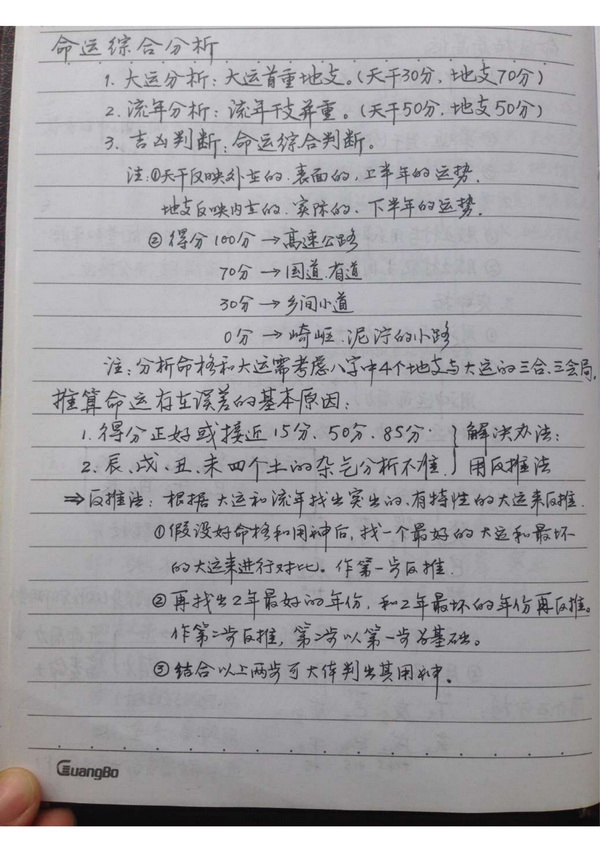 命运综合分析
1. 大运分析：大运首重地支。(天干30分，地支70分)
2. 流年分析：流年干支并重。(天干50分，地支50分)
3. 吉凶判断：命运综合判断。
注：①天干反映外在的、表面的，上半年的运势，
地支反映内在的、实际的、下半年的运势，
②得分100分→高速公路
70分→国道、省道
30分→乡间小道
0分→崎岖、泥泞的小路
注：分析命格和大运需考虑八字中4个地支与大运的三合、三会局，
推算命运存在误差的基本原因：
1. 得分正好或接近15分、50分、85分. } 解决办法：
2. 辰、戌、丑、未四个土的杂气分析不准. } 用反推法
⇒反推法：根据大运和流年找出突出的，有特性的大运来反推.
①假设好命格和用神后，找一个最好的大运和最坏
的大运来进行对比。作第一步反推.
②再找出2年最好的年份，和2年最坏的年份再反推。
作第二步反推，第二步以第一步为基础。
③结合以上两步可大体判出其用神.
GuangBo